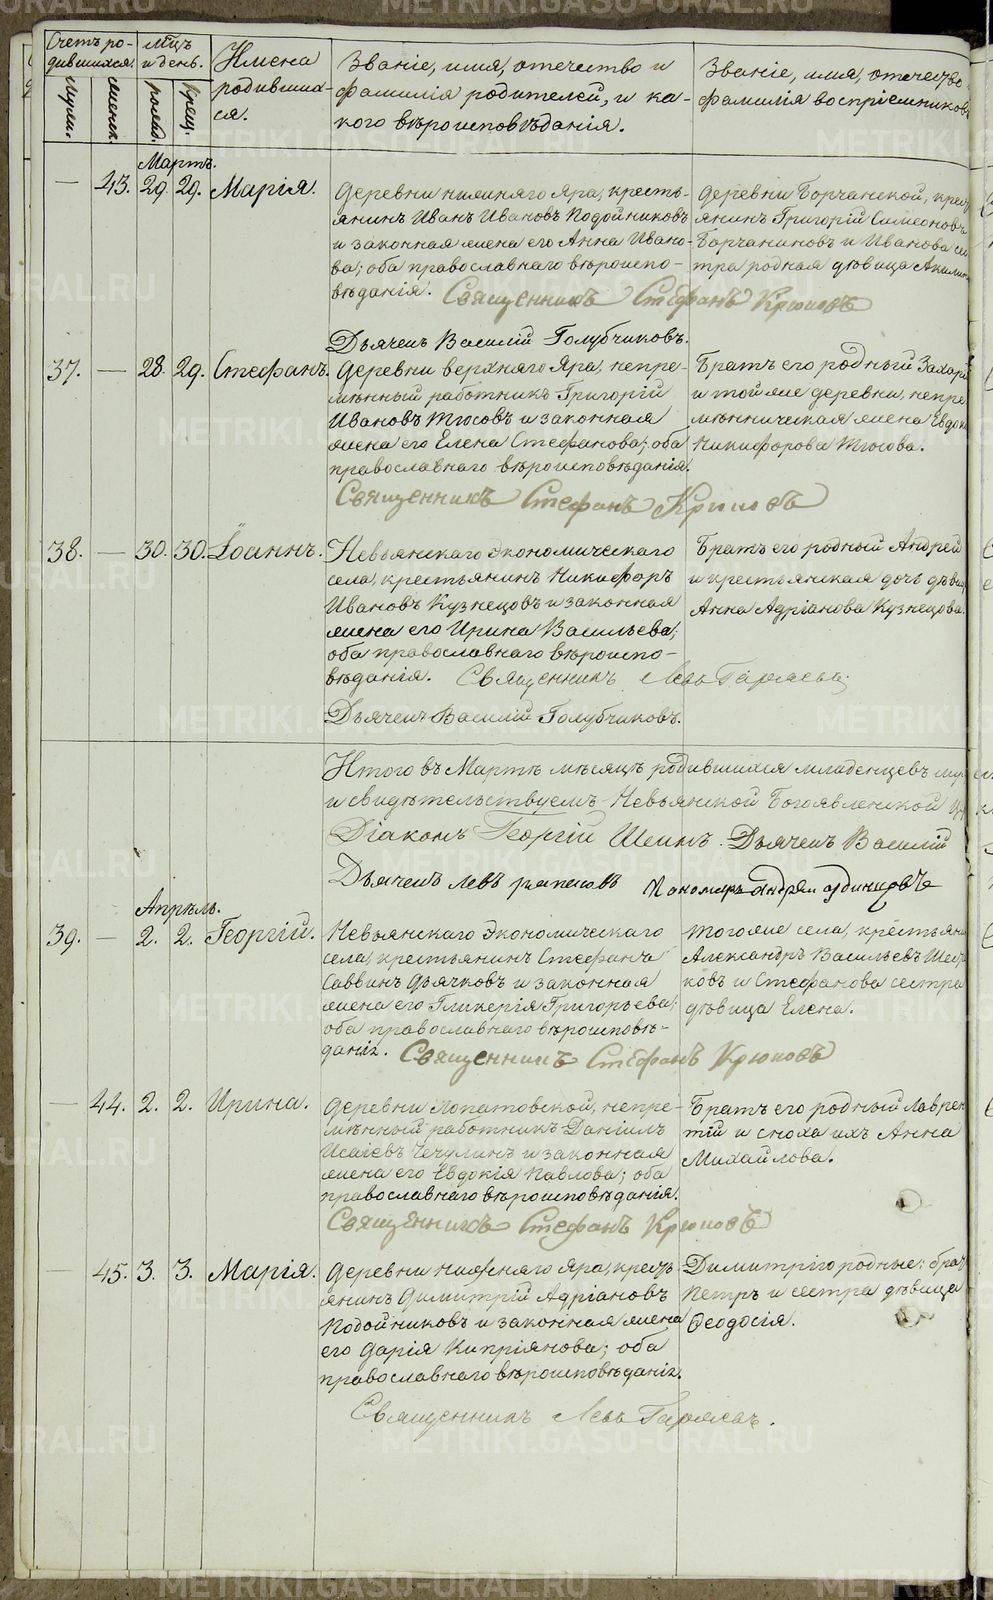 Счетъ ро-
дившихся.
Мужск.
женск.
Мцъ
и день.
рожд.
крещ.
Имена
родивших-
ся.
Званіе, имя, отечество и
фамилія родителей, и ка-
кого вѣроисповѣданія.
Званіе, имя, отечество
фамилія воспріемниковъ
Мартъ.
— 43. 29. 29. Марія.
деревни нижняго Яра, кресть-
янинъ Иванъ Ивановъ Подойниковъ
и законная жена его Анна Ивано-
ва; оба православнаго вѣроиспо-
вѣданія. Священникъ Стефанъ Крюковъ
Дьячекъ Василій Голубчиковъ.
деревни Борчанской, крест
янинъ Григорій Симеоновъ
Борчаниновъ и Иванова сес
тра родная дѣвица Акилин
37. — 28. 29. Стефанъ.
деревни верхняго Яра, непре-
мѣнный работникъ Григорій
Ивановъ Тюсовъ и законная
жена его Елена Стефанова; оба
православнаго вѣроисповѣданія.
Священникъ Стефанъ Крюковъ
Братъ его родный Захарі
и той же деревни, непре
мѣнническая жена Евдок
Никифорова Тюсова.
38. — 30. 30. Іоаннъ.
Невьянскаго экономическаго
села, крестьянинъ Никифоръ
Ивановъ Кузнецовъ и законная
жена его Ирина Васильева;
оба православнаго вѣроиспо-
вѣданія. Священникъ Левъ Гаряевъ.
Дьячекъ Василій Голубчиковъ.
Братъ его родный Андрей
и крестьянская дочь дѣвиц
Анна Адріанова Кузнецова.
Итого въ Мартѣ мѣсяцѣ родившихся младенцевъ муж
и свидѣтельствуемъ Невьянской Богоявленской Ц
Діаконъ Георгій Шеинъ. Дьячекъ Василій
Дьячекъ Левъ Пономарь Андрей Одинцовъ
Апрѣль.
39. — 2. 2. Георгій.
Невьянскаго экономическаго
села, крестьянинъ Стефанъ
Саввинъ Дьячковъ и законная
жена его Гликерія Григорьева;
оба православнаго вѣроисповѣ-
данія. Священникъ Стефанъ Крюковъ
тогоже села, крестьяни
Александръ Васильевъ
ковъ и Стефанова сестра
дѣвица Елена.
— 44. 2. 2. Ирина.
деревни Лопатовской, непре-
мѣнный работникъ Даніилъ
Исаіевъ Чечулинъ и законная
жена его Евдокія Павлова; оба
православнаго вѣроисповѣданія.
Священникъ Стефанъ Крюковъ
Братъ его родный Лаврен
тій и сноха ихъ Анна
Михайлова.
— 45. 3. 3. Марія.
деревни нижняго Яра, крест-
янинъ Димитрій Адріановъ
Подойниковъ и законная жена
его Дарія Кипріянова; оба
православнаго вѣроисповѣданія.
Священникъ Левъ Гаряевъ.
Димитрію родные: брат
Петръ и сестра дѣвица
Ѳеодосія.
METRIKI.GASO-URAL.RU